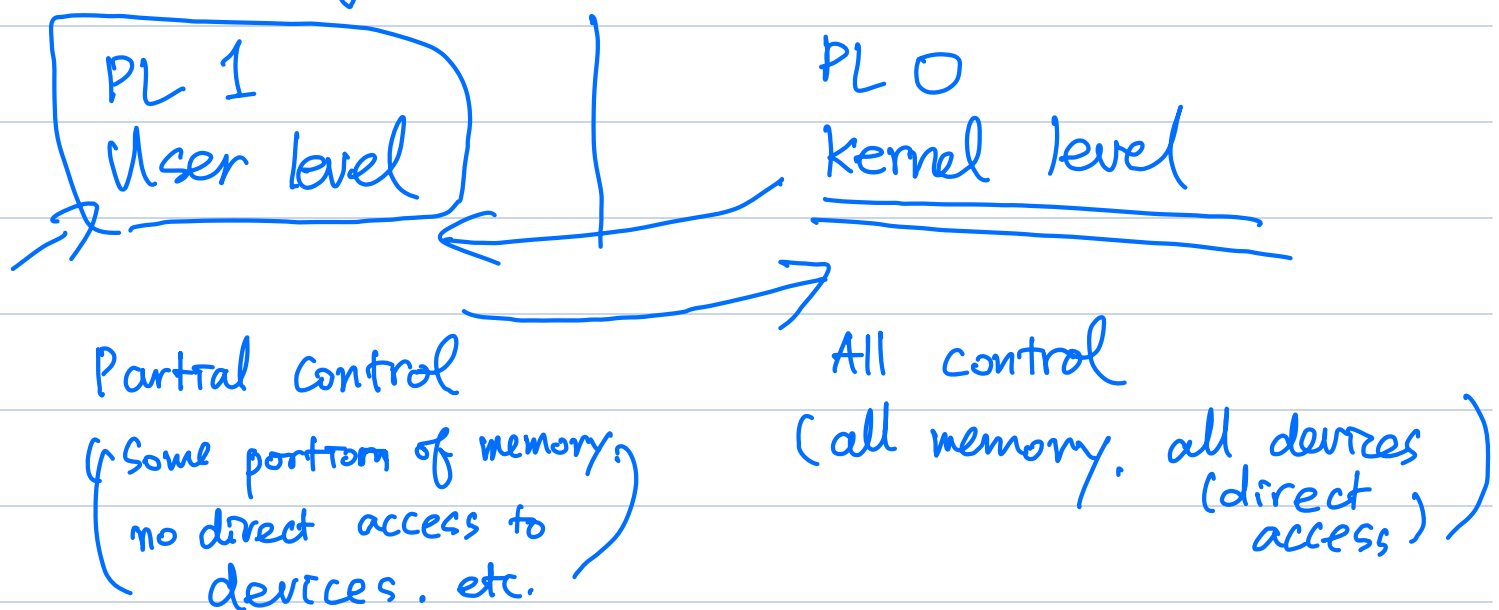 PL 1
User level
PL 0
kernel level
Partial control
(some portion of memory,
no direct access to
devices, etc.)
All control
(all memory, all devices
(direct
access))